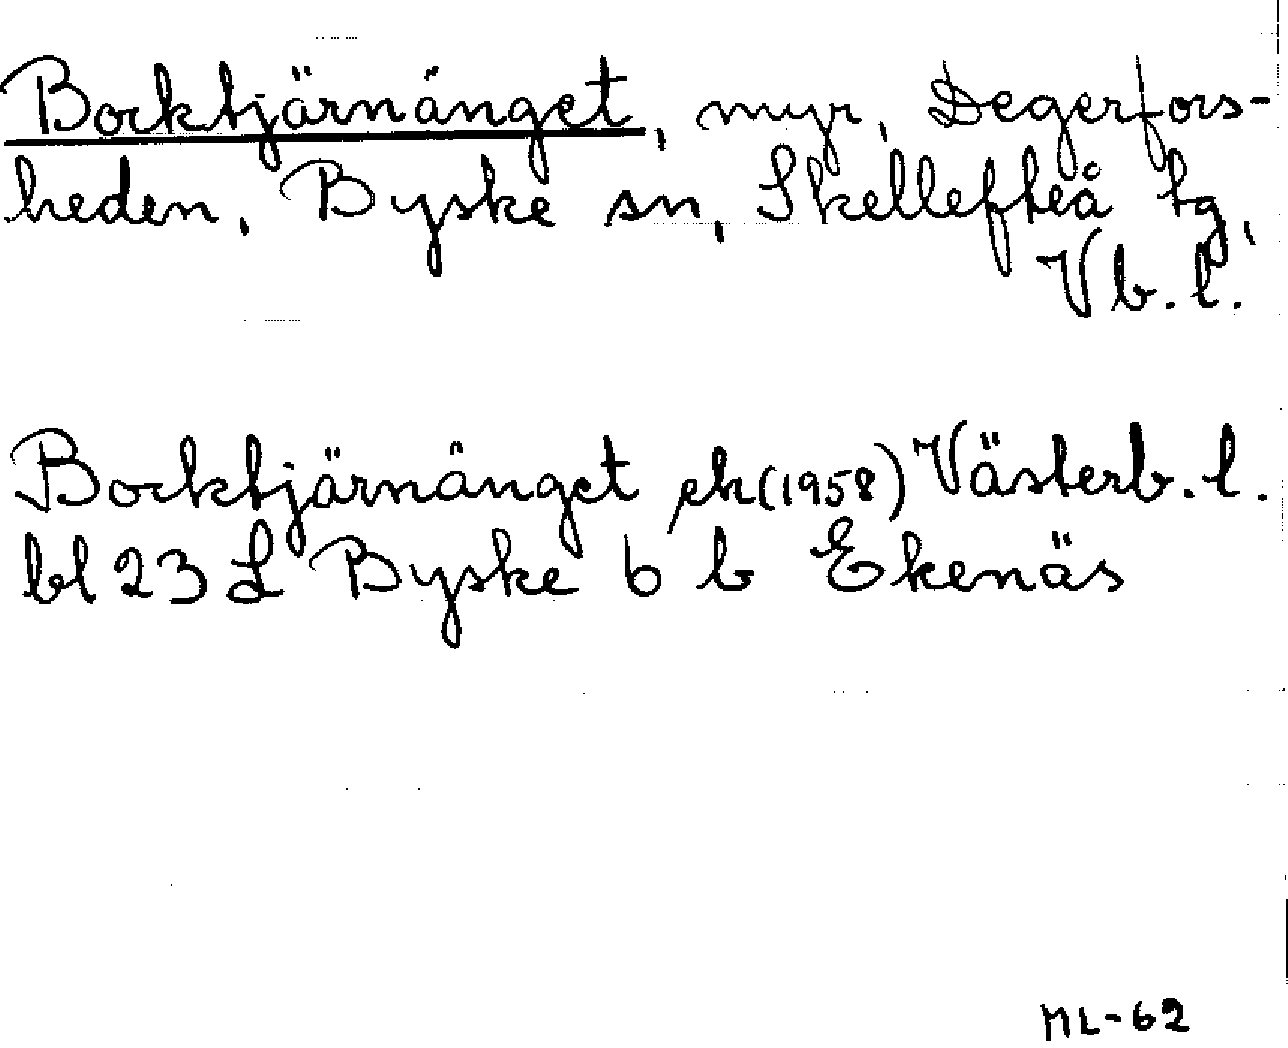 Bocktjärnänget, myr, Degerfors-
heden, Byske sn, Skellefteå tg,
Vb. l.
Bocktjärnänget ek (1958) Västerb. l.
bl 23 L Byske 6 b Ekenäs
ML-62